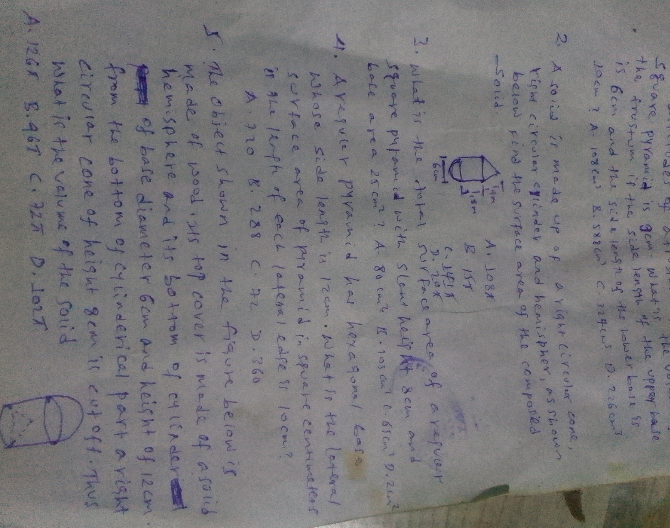 square pyramid is 9cm what is the
the frustum if the side length of the upper base
is 6cm and the side length of the lower base is
10cm? A. 108cm³ B. 588cm³ C.
2. A solid is made up of a right circular cone,
right circular cylinder and hemispher, as shown
below find the surface area of the composed
Solid
6cm
A. 108π
B. 15π
3. what is the total surface area of a reguler
square pyramid with slant height 8cm and
base area 25cm²? A. 80cm² B. 105cm²
4. A reguler pyramid has hexagonal base
whose side length is 12cm. what is the lateral
surface area of pyramid in square centimeters
if the length of each lateral edge is 10cm?
A. 720 B. 288 C. 72 D. 360
5. The object shown in the figure below is
made of wood. its top cover is made of a solid
hemisphere and its bottom of cylinder
of base diameter 6cm and height of 12cm.
from the bottom of cylinderical part a right
circular cone of height 8cm is cut off. Thus
what is the volume of the solid
A. 126π B. 96π C. 72π D. 102π